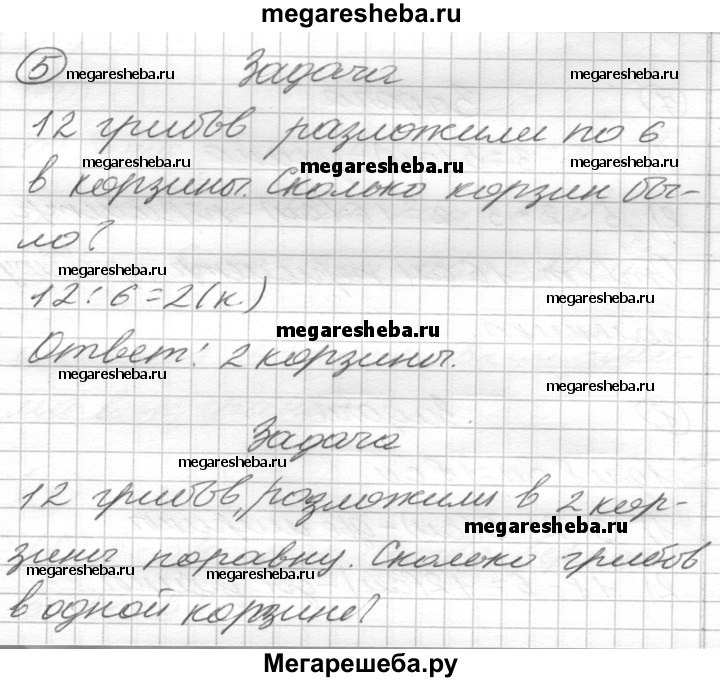 megaresheba.ru
5 megaresheba.ru Задача megaresheba.ru
12 грибов разложили по 6
megaresheba.ru megaresheba.ru megaresheba.ru
в корзины. Сколько корзин бы-
ло?
megaresheba.ru
12:6=2(к.) megaresheba.ru
megaresheba.ru
Ответ: 2 корзины.
megaresheba.ru megaresheba.ru
Задача
megaresheba.ru
12 грибов, разложили в 2 кор-
megaresheba.ru
зины поравну. Сколько грибов
megaresheba.ru megaresheba.ru
в одной корзине?
Мегарешеба.ру